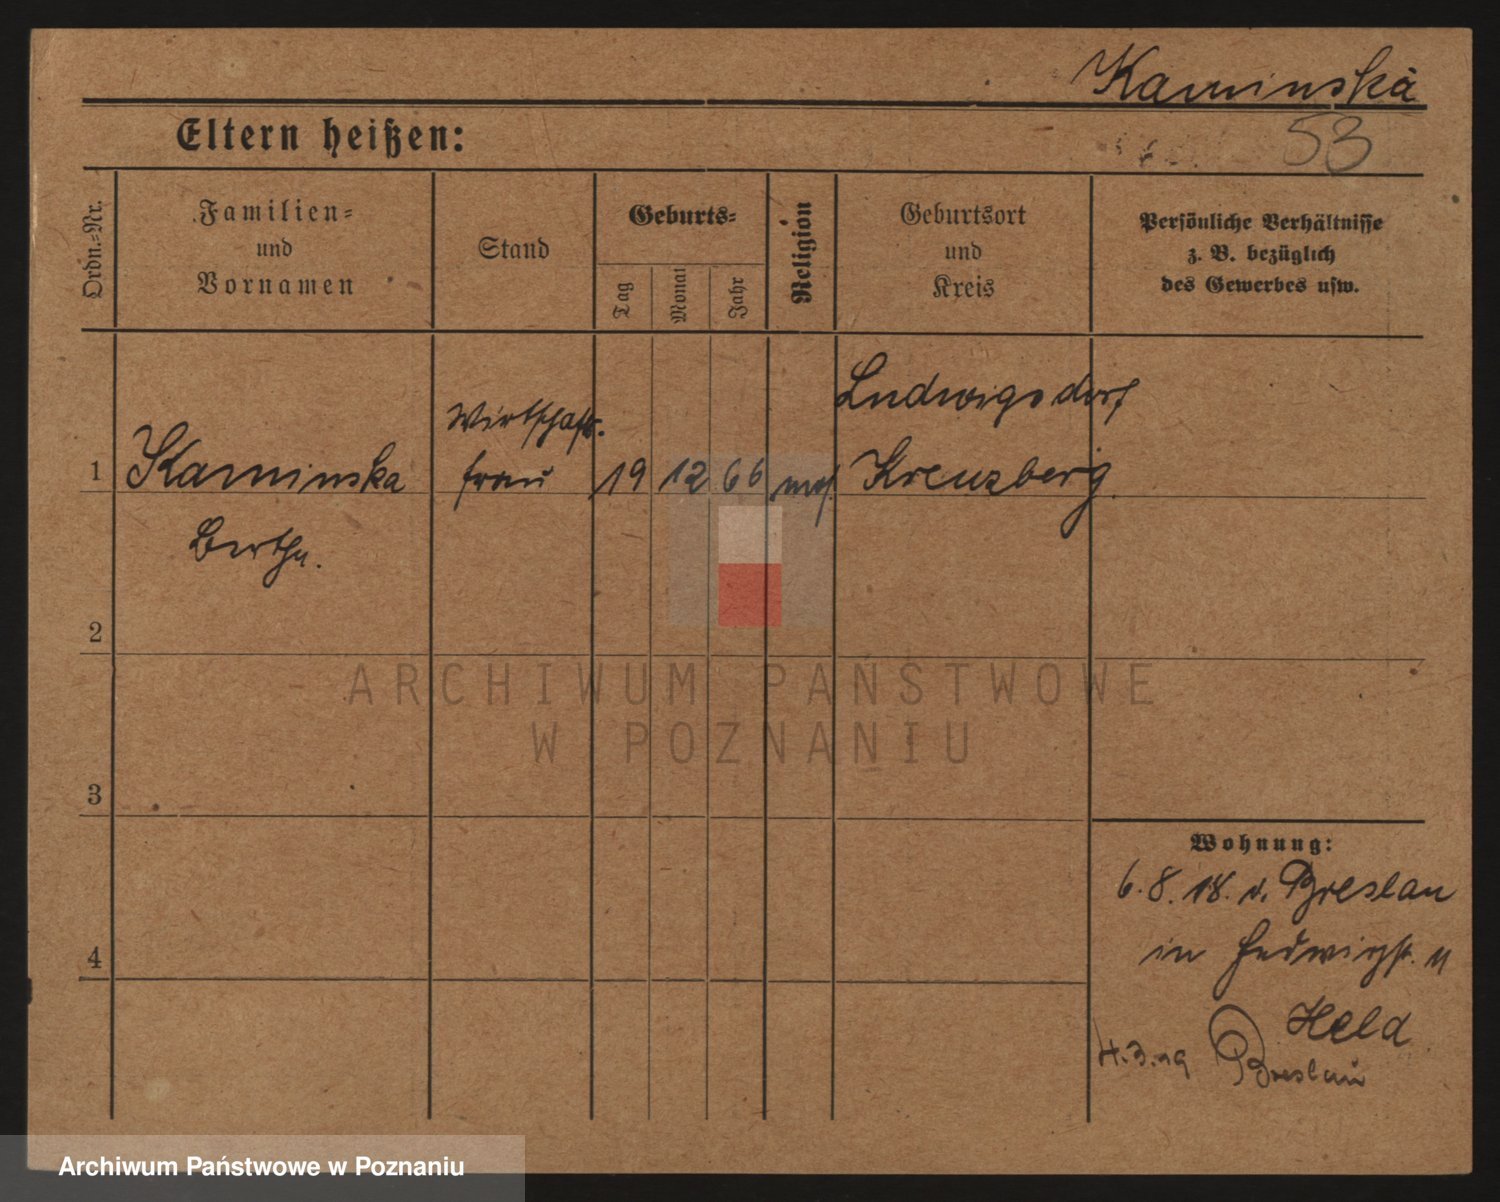 Kaminska
53
Eltern heißen:
Ordn.=Nr.
Familien=
und
Vornamen
Stand
Geburts=
Tag
Monat
Jahr
Religion
Geburtsort
und
Kreis
Persönliche Verhältnisse
z. B. bezüglich
des Gewerbes usw.
1
Kaminska
Bertha.
Wirtschafts.
frau
19
12
66
Ludwigsdorf
Kreuzberg
2
3
4
ARCHIWUM PAŃSTWOWE
W POZNANIU
Wohnung:
6. 8. 18. v. Breslau
in Hedwigst. 11
Held
4. 3. 19 Breslau
Archiwum Państwowe w Poznaniu